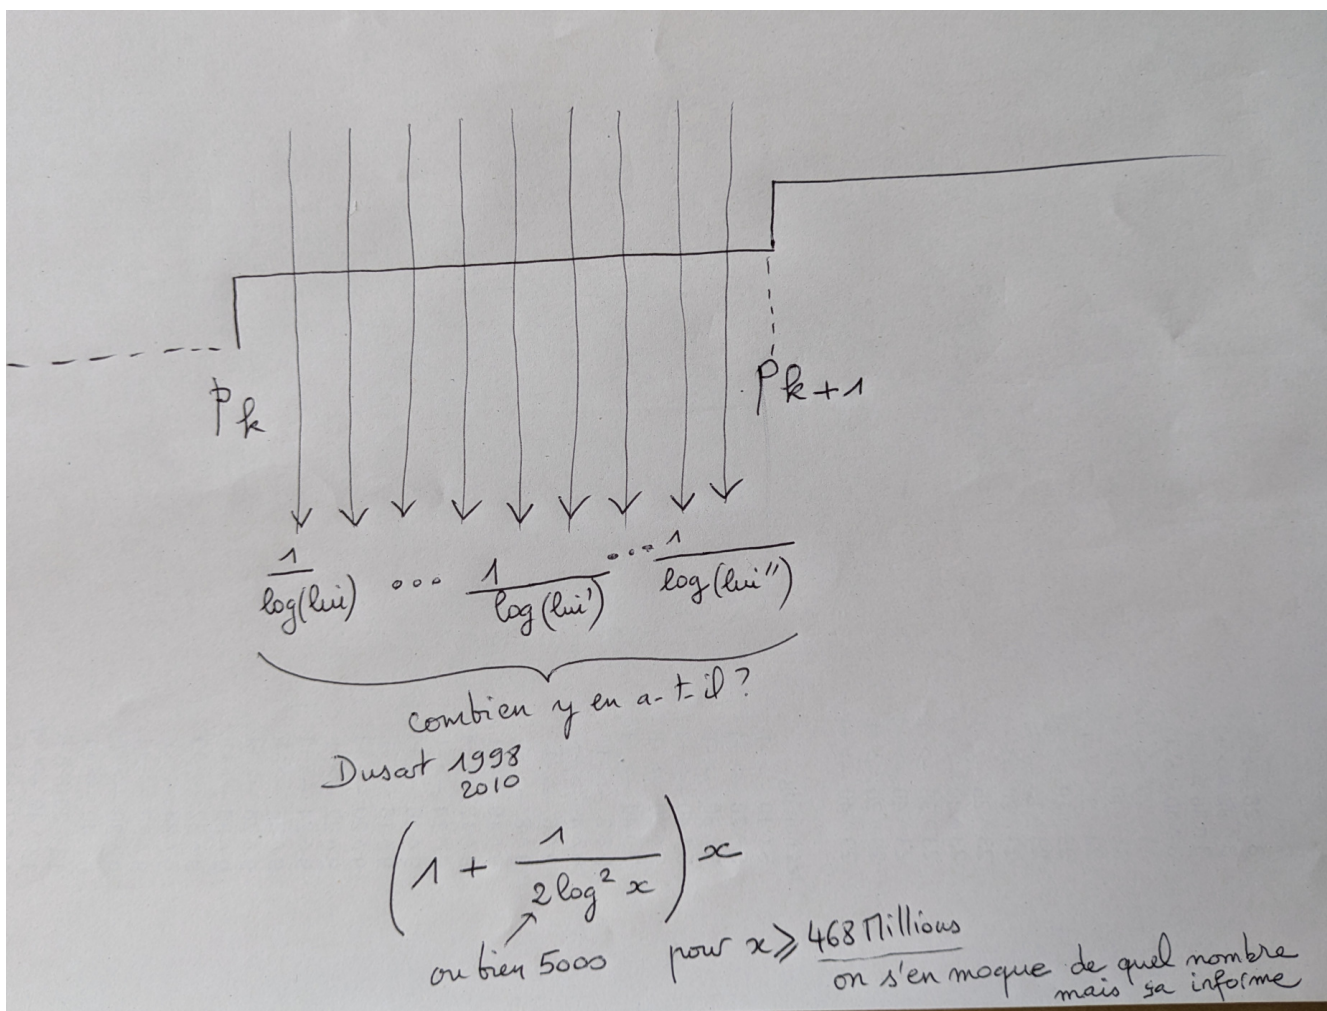 p_k
p_{k+1}
1/log(lui) ... 1/log(lui') ... 1/log(lui'')
combien y en a-t-il ?
Dusart 1998
2010
(1 + 1/(2 log² x)) x
ou bien 5000 pour x ⩾ 468 Millions
on s'en moque de quel nombre
mais ça informe